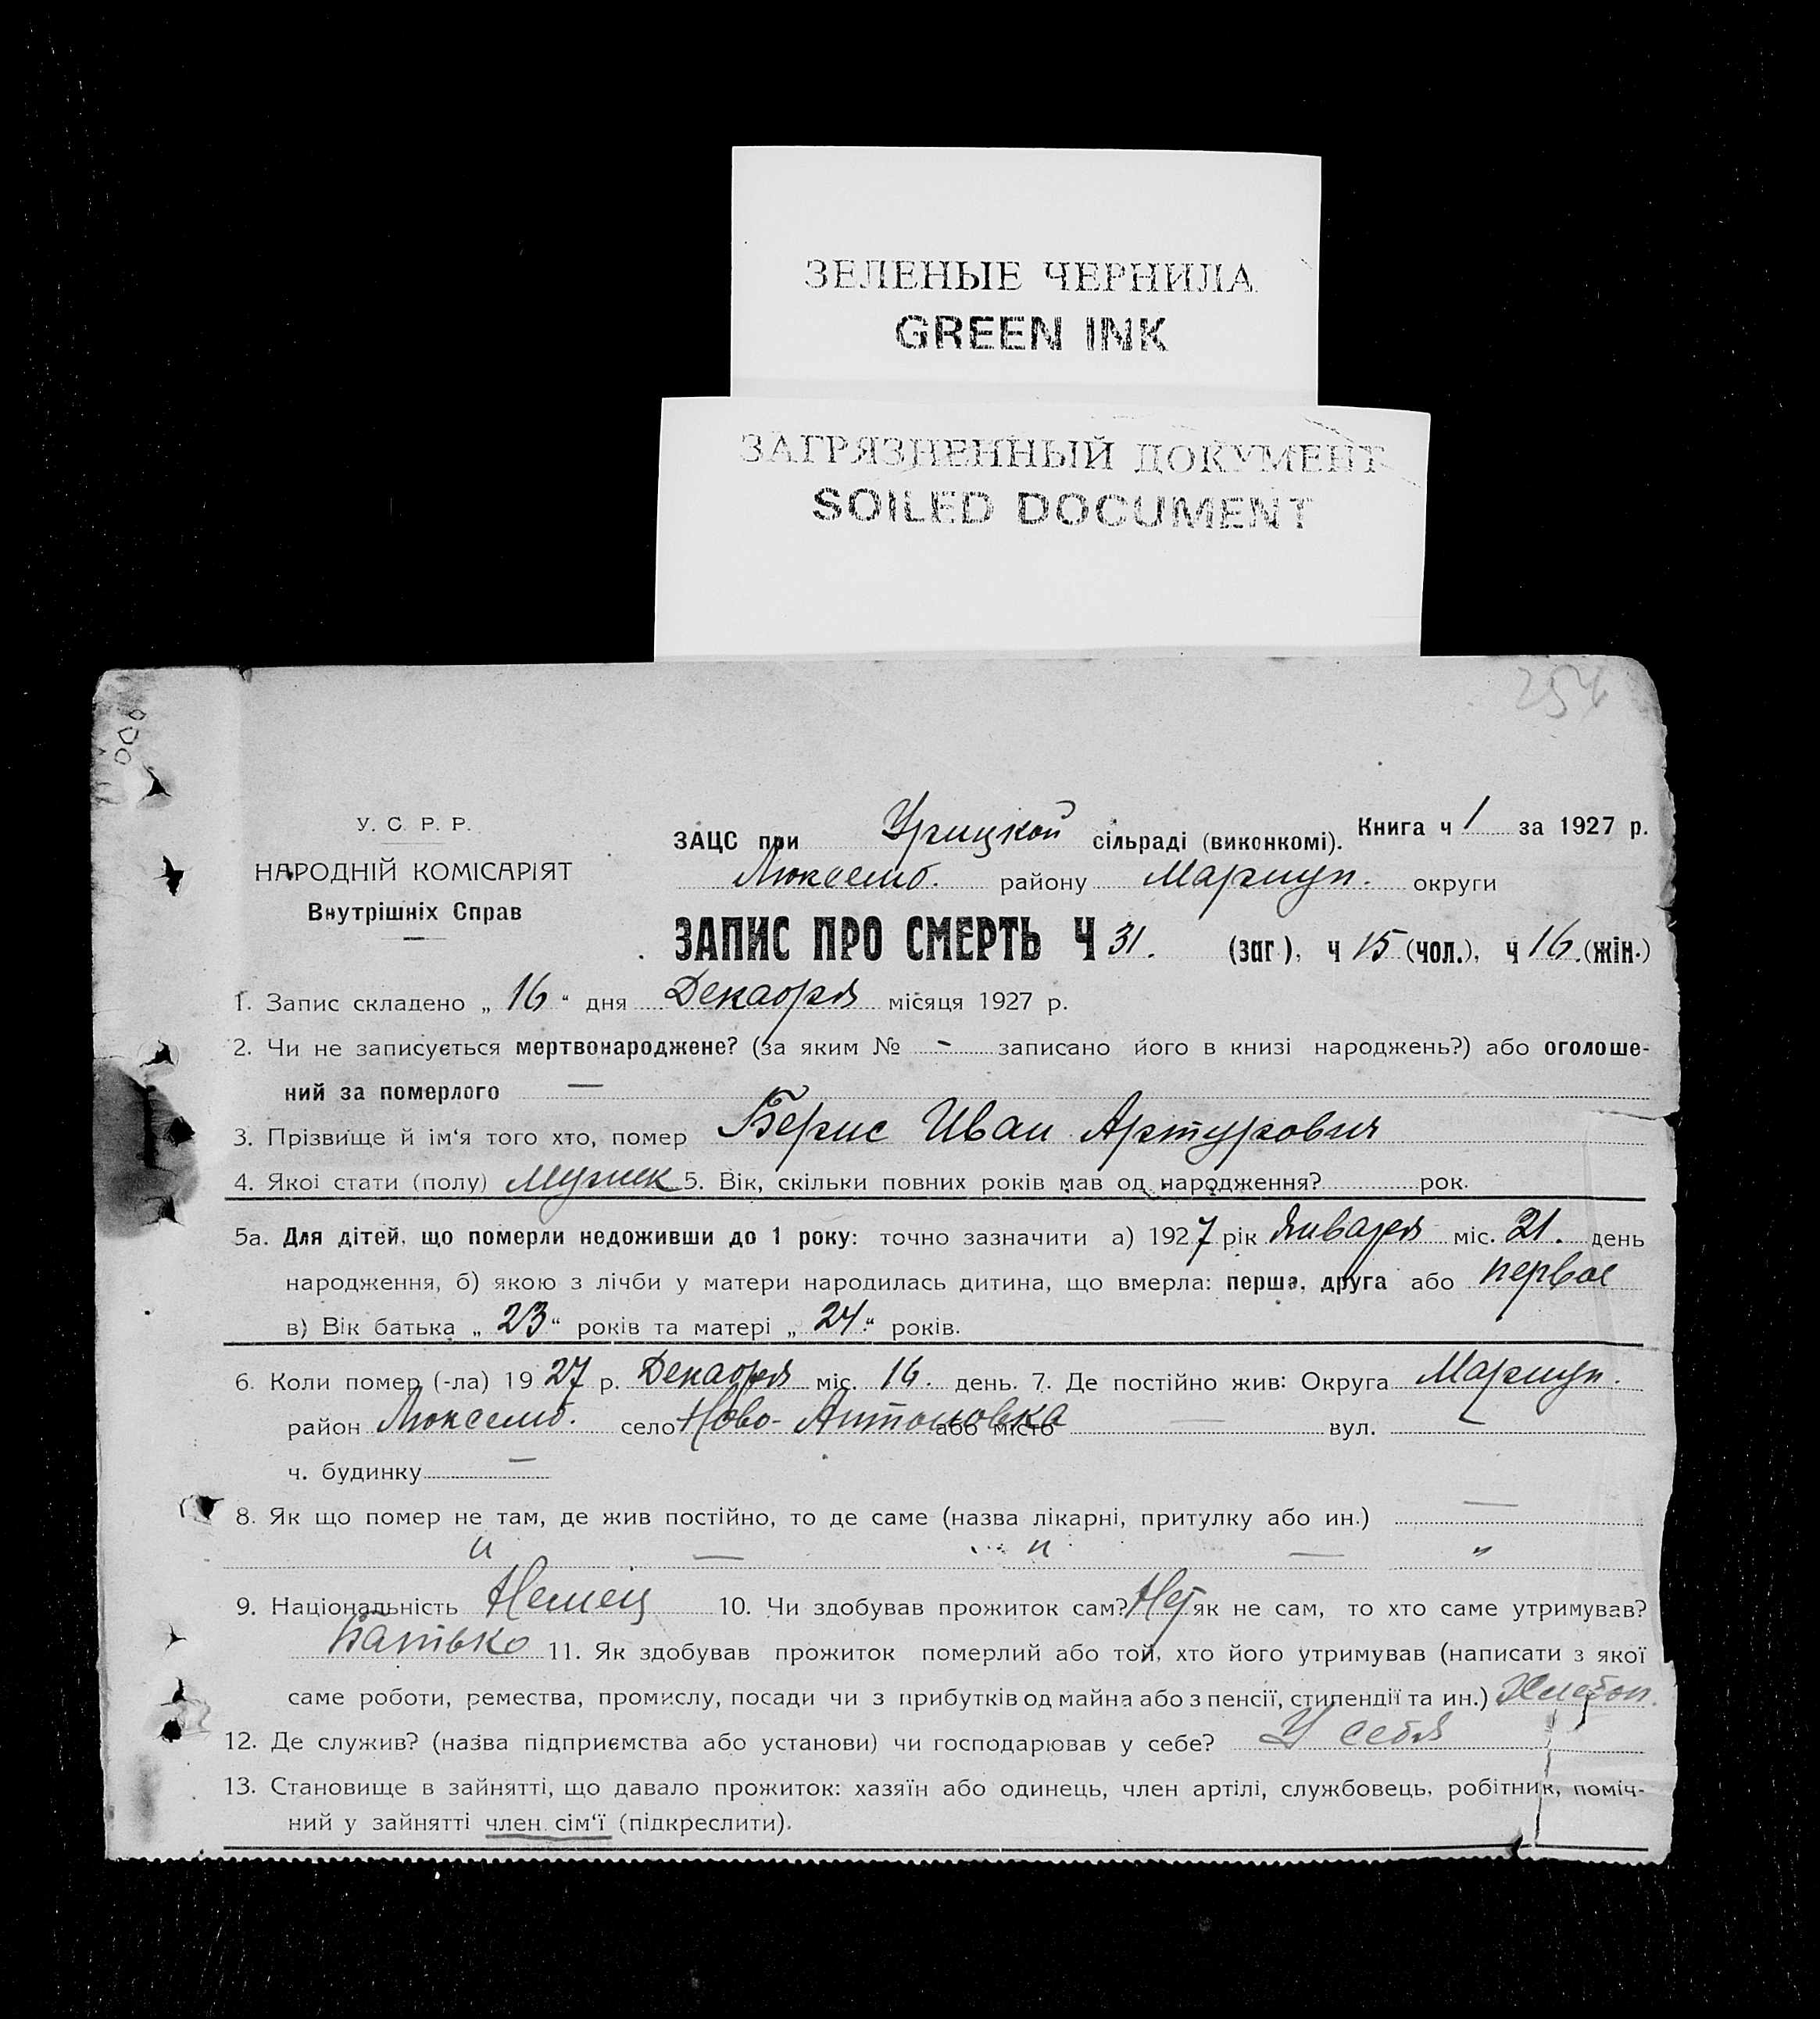 ЗЕЛЕНЫЕ ЧЕРНИЛА
GREEN INK
ЗАГРЯЗНЕННЫЙ ДОКУМЕНТ
SOILED DOCUMENT
254
У. С. Р. Р.
НАРОДНІЙ КОМІСАРІЯТ
Внутрішніх Справ
ЗАЦС при Урицкой сільраді (виконкомі). Книга ч 1 за 1927 р.
Люксемб. району Мариуп. округи
ЗАПИС ПРО СМЕРТЬ Ч 31. (заг.), ч 15 (чол.), ч 16. (жін.)
1. Запис складено „ 16 “ дня Декабря місяця 1927 р.
2. Чи не записується мертвонароджене? (за яким № - записано його в книзі народжень?) або оголоше-
ний за померлого —
3. Прізвище й ім‘я того хто, помер Берис Иван Артурович
4. Якої стати (полу) Мужск 5. Вік, скільки повних років мав од народження? рок.
5а. Для дітей, що померли недоживши до 1 року: точно зазначити а) 1927 рік Января міс. 21. день
народження, б) якою з лічби у матери народилась дитина, що вмерла: перша, друга або первое
в) Вік батька „ 23 “ років та матері „ 24 “ років.
6. Коли помер (-ла) 1927 р. Декабря міс. 16. день. 7. Де постійно жив: Округа Мариуп.
район Люксемб. село Ново-Антоновка або місто — вул.
ч. будинку —
8. Як що помер не там, де жив постійно, то де саме (назва лікарні, притулку або ин.) —
" — " — "
9. Національність Немец 10. Чи здобував прожиток сам? Нет як не сам, то хто саме утримував?
Батько 11. Як здобував прожиток померлий або той, хто його утримував (написати з якої
саме роботи, ремества, промислу, посади чи з прибутків од майна або з пенсії, стипендії та ин.) Хлебоп.
12. Де служив? (назва підприємства або установи) чи господарював у себе? У себя
13. Становище в зайнятті, що давало прожиток: хазяїн або одинець, член артілі, службовець, робітник, поміч-
ний у зайнятті член сім‘ї (підкреслити).